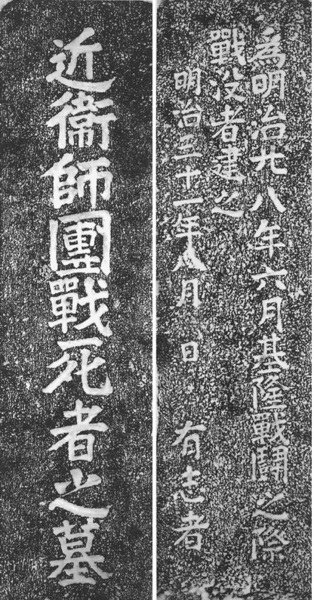 為明治廿八年六月基隆戰鬪之際
戰没者建之
明治三十一年八月 日 有志者
近衞師團戰死者之墓